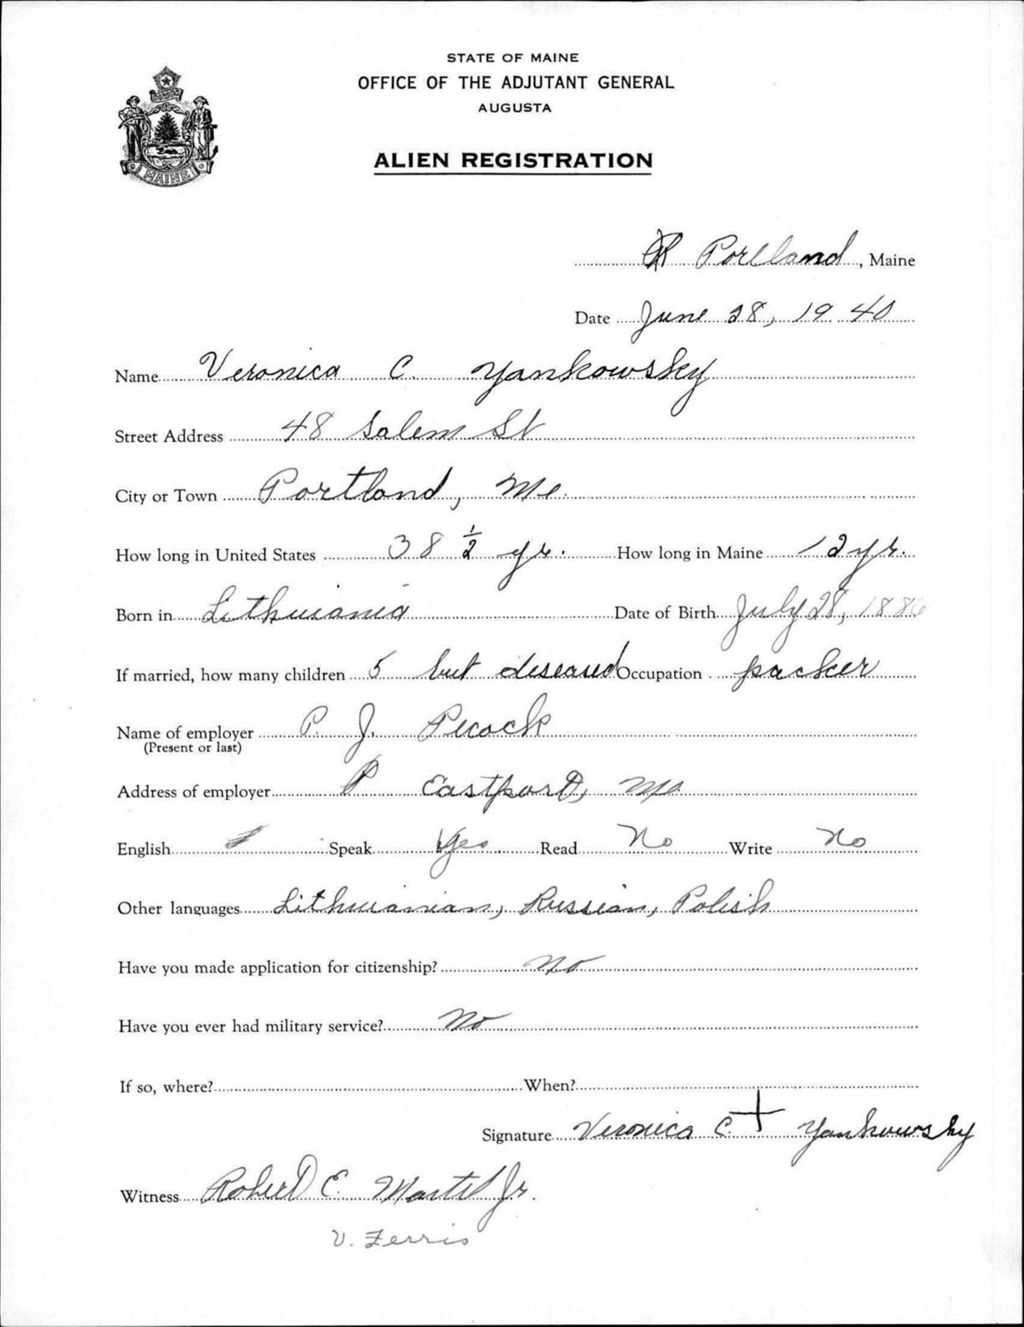 STATE OF MAINE
OFFICE OF THE ADJUTANT GENERAL
AUGUSTA
ALIEN REGISTRATION
MAINE
Portland, Maine
Date June 28, 1940
Name Veronica C. Yankowsky
Street Address 48 Salem St
City or Town Portland, Me.
How long in United States 38 ½ yr. How long in Maine 12 yr.
Born in Lithuania Date of Birth July 28, 1886
If married, how many children 5 but diseased Occupation packer
Name of employer P. J. Pecock
(Present or last)
Address of employer Eastport, Me
English Speak Yes Read No Write No
Other languages Lithuanian, Russian, Polish
Have you made application for citizenship? No
Have you ever had military service? No
If so, where? When?
Signature Veronica C. + Yankowsky
Witness Robert E. Martel Jr.
V. Ferris